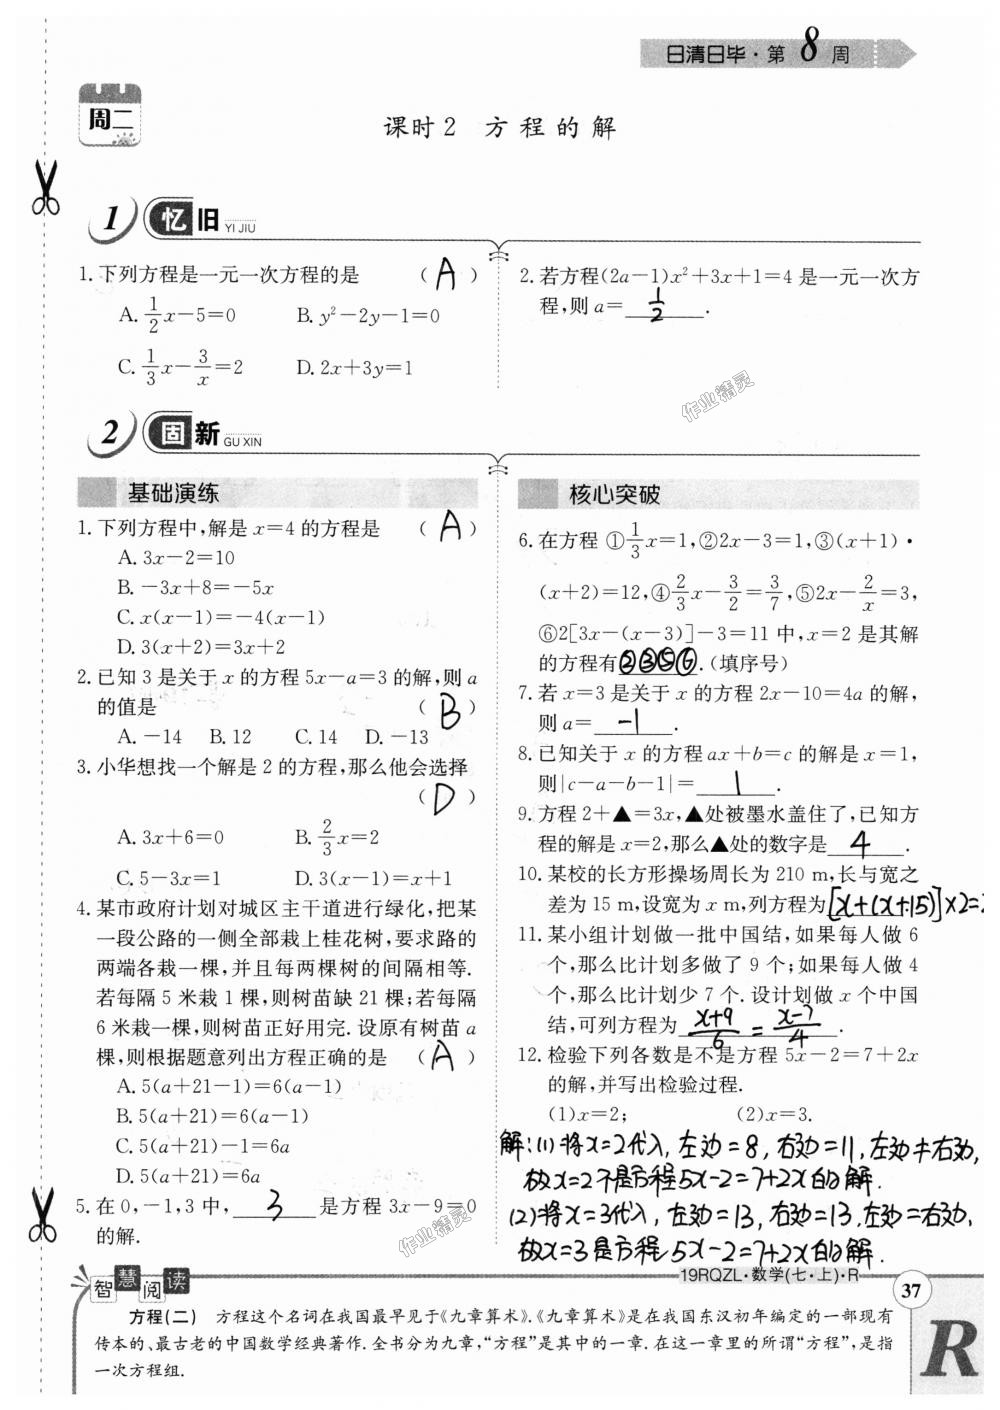 日清日毕·第8周
周二
课时2 方程的解
1 忆旧 YI JIU
1.下列方程是一元一次方程的是 (A)
A.1/2x-5=0 B.y²-2y-1=0
C.1/3x-3/x=2 D.2x+3y=1
2.若方程(2a-1)x²+3x+1=4 是一元一次方
程,则 a=1/2.
作业精灵
2 固新 GU XIN
基础演练
1.下列方程中,解是 x=4 的方程是 (A)
A.3x-2=10
B.-3x+8=-5x
C.x(x-1)=-4(x-1)
D.3(x+2)=3x+2
2.已知 3 是关于 x 的方程 5x-a=3 的解,则 a
的值是 (B)
A.-14 B.12 C.14 D.-13
3.小华想找一个解是 2 的方程,那么他会选择
(D)
A.3x+6=0 B.2/3x=2
C.5-3x=1 D.3(x-1)=x+1
4.某市政府计划对城区主干道进行绿化,把某
一段公路的一侧全部栽上桂花树,要求路的
两端各栽一棵,并且每两棵树的间隔相等.
若每隔 5 米栽 1 棵,则树苗缺 21 棵;若每隔
6 米栽一棵,则树苗正好用完.设原有树苗 a
棵,则根据题意列出方程正确的是 (A)
A.5(a+21-1)=6(a-1)
B.5(a+21)=6(a-1)
C.5(a+21)-1=6a
D.5(a+21)=6a
5.在 0,-1,3 中,3是方程 3x-9=0
的解.
作业精灵
核心突破
6.在方程 ①1/3x=1,②2x-3=1,③(x+1)·
(x+2)=12,④2/3x-3/2=3/7,⑤2x-2/x=3,
⑥2[3x-(x-3)]-3=11 中,x=2 是其解
的方程有②③⑤⑥.(填序号)
7.若 x=3 是关于 x 的方程 2x-10=4a 的解,
则 a=-1.
8.已知关于 x 的方程 ax+b=c 的解是 x=1,
则|c-a-b-1|=1.
9.方程 2+▲=3x,▲处被墨水盖住了,已知方
程的解是 x=2,那么▲处的数字是4.
10.某校的长方形操场周长为 210 m,长与宽之
差为 15 m,设宽为 x m,列方程为[x+(x+15)]×2=2
11.某小组计划做一批中国结,如果每人做 6
个,那么比计划多做了 9 个;如果每人做 4
个,那么比计划少 7 个.设计划做 x 个中国
结,可列方程为(x+9)/6=(x-7)/4.
12.检验下列各数是不是方程 5x-2=7+2x
的解,并写出检验过程.
(1)x=2; (2)x=3.
解:(1)将x=2代入,左边=8,右边=11,左边≠右边,
故x=2不是方程5x-2=7+2x的解.
(2)将x=3代入,左边=13,右边=13,左边=右边,
故x=3是方程5x-2=7+2x的解.
智慧阅读
19RQZL·数学(七·上)·R
37
方程(二) 方程这个名词在我国最早见于《九章算术》.《九章算术》是在我国东汉初年编定的一部现有
传本的、最古老的中国数学经典著作.全书分为九章,“方程”是其中的一章.在这一章里的所谓“方程”,是指
一次方程组.
R